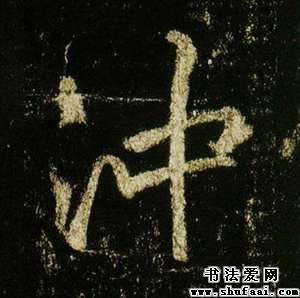 冲
书法爱网
www.shufaai.com